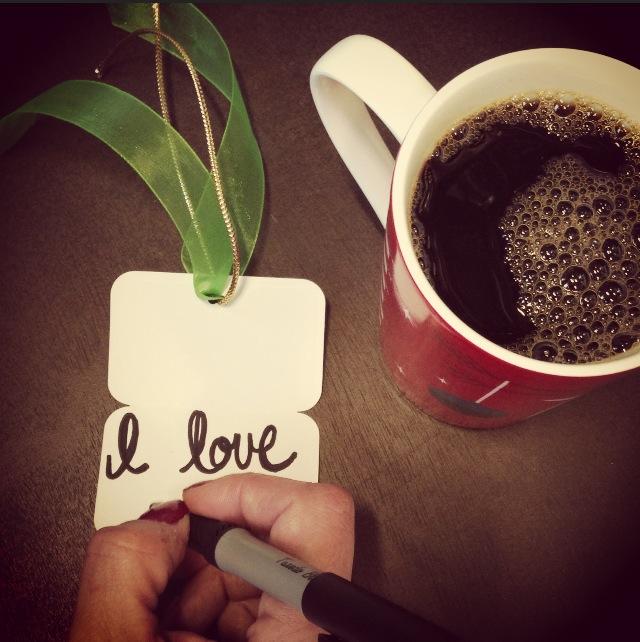 I love